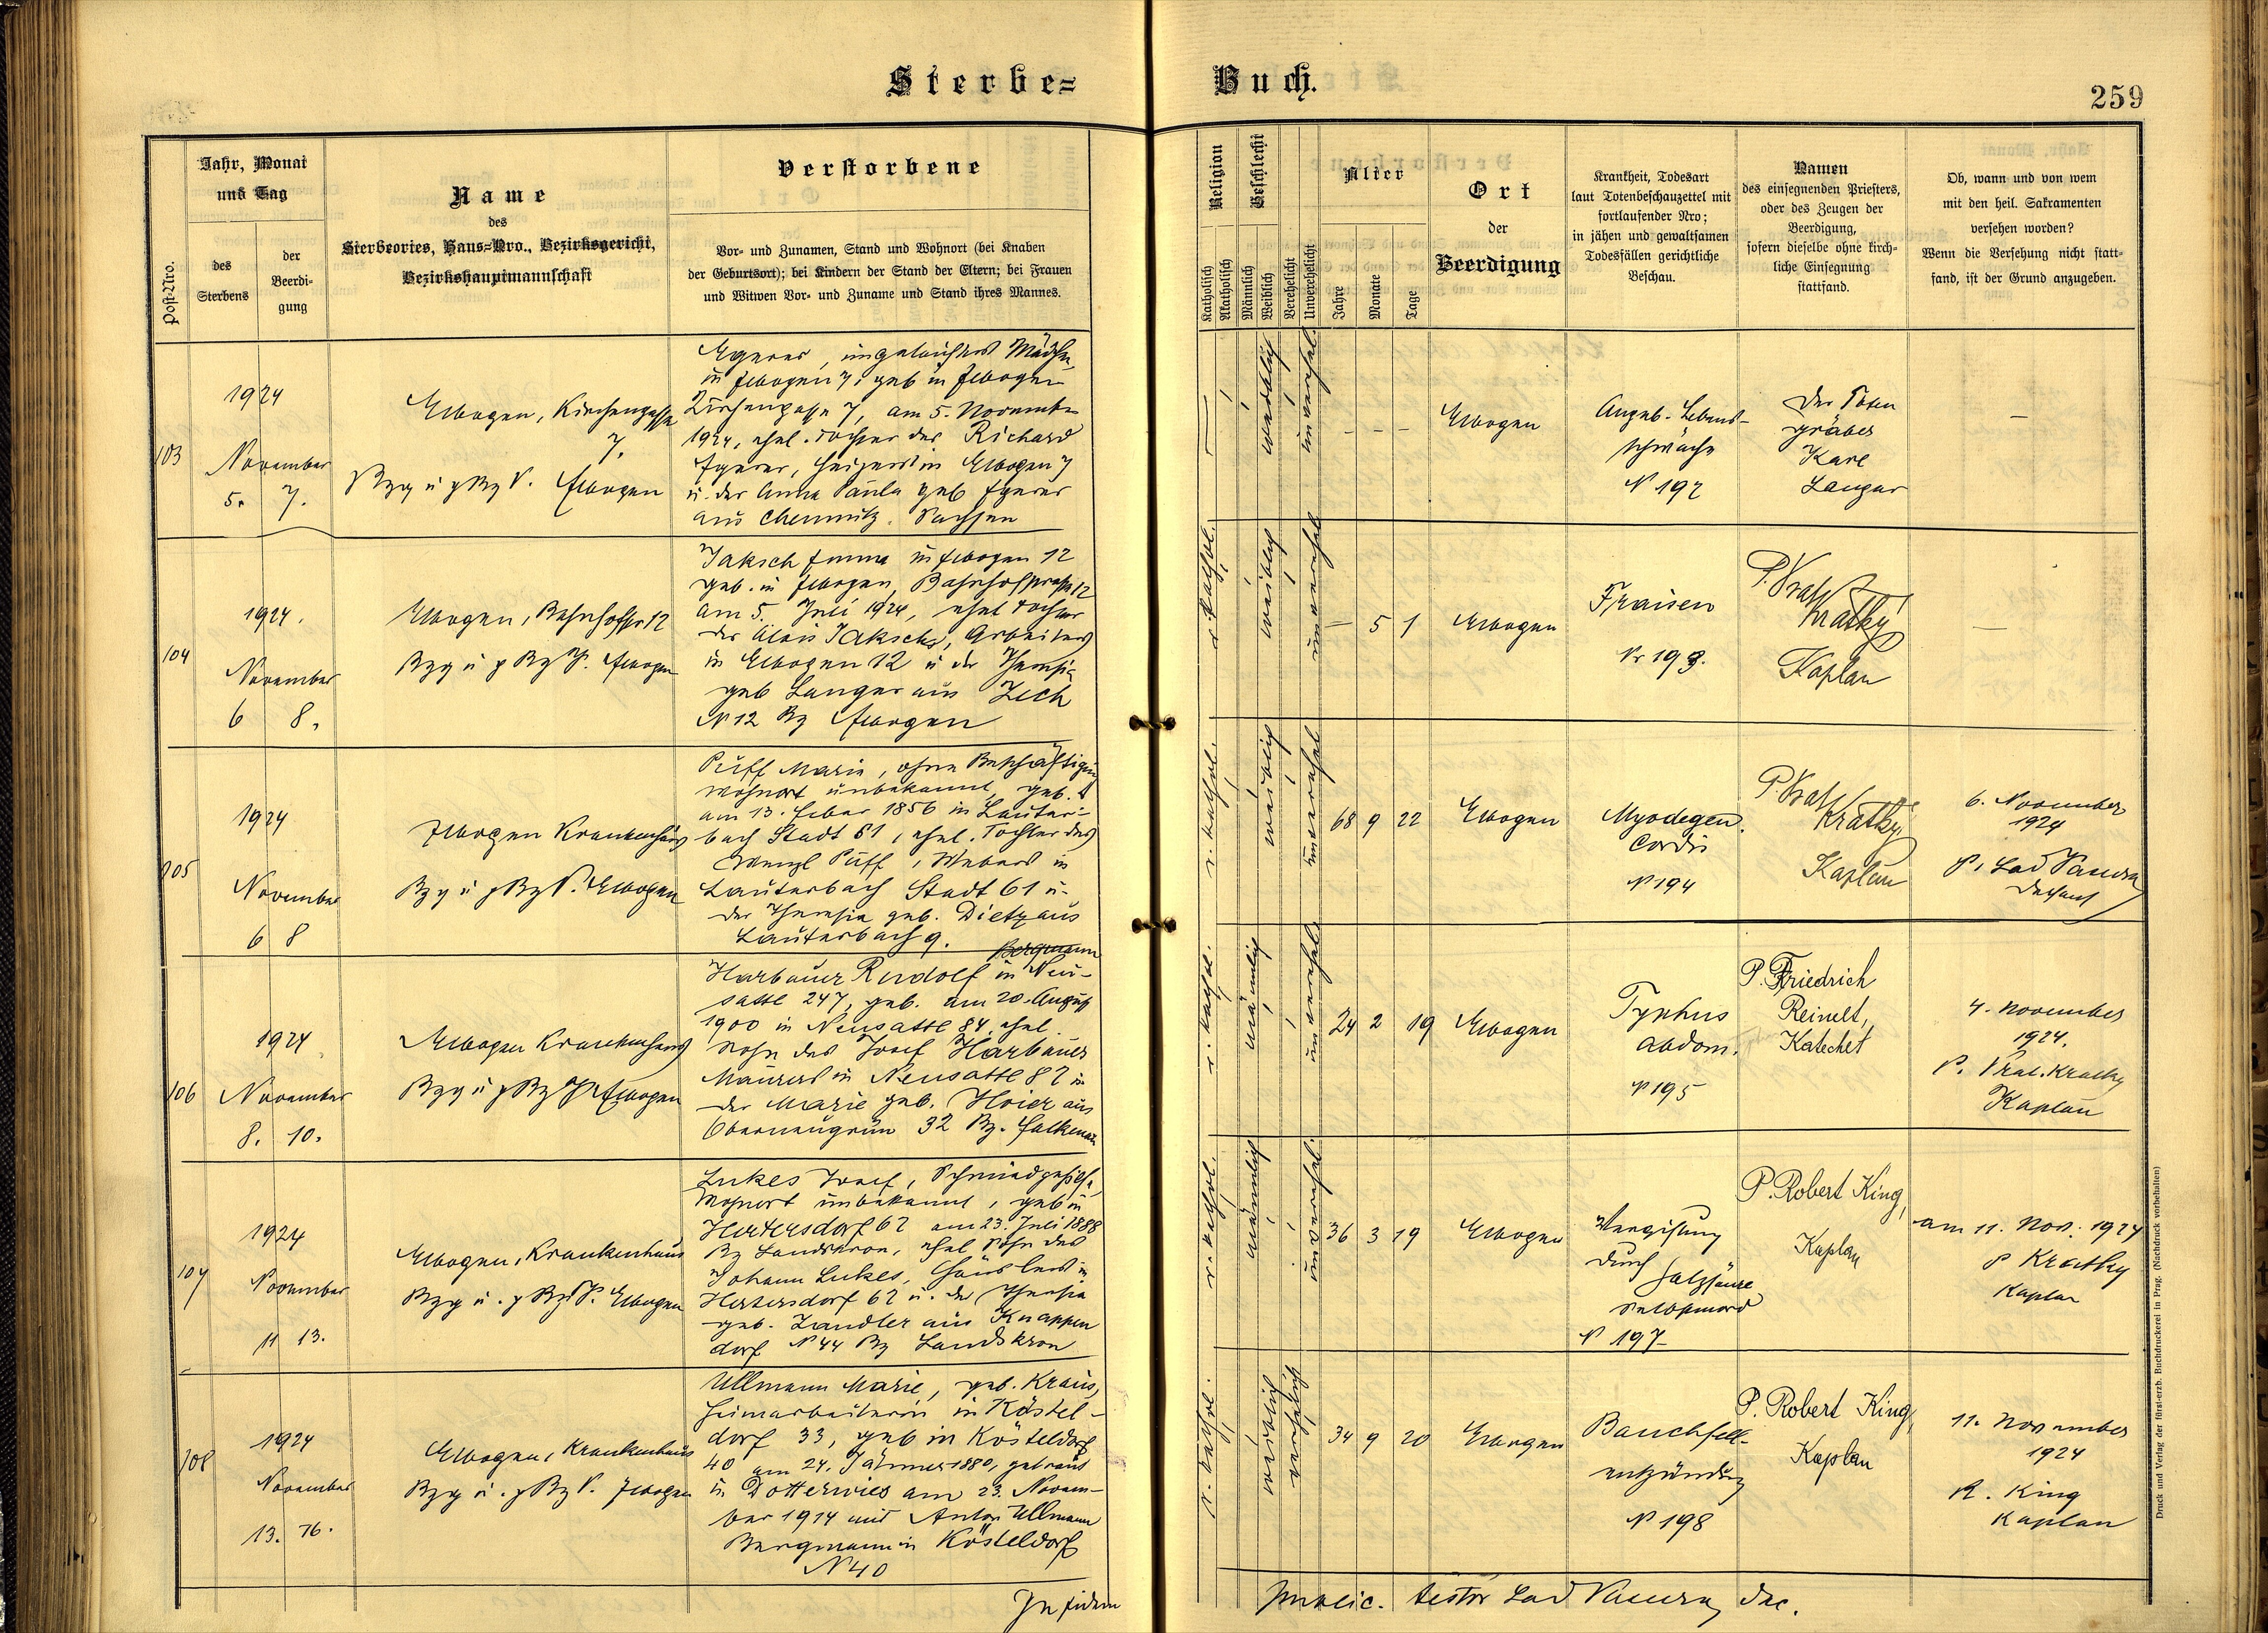 Sterbe=
Buch.
259
Post-Nro.
Jahr, Monat
und Tag
des
Sterbens
der
Beerdi-
gung
Name
des
Sterbeortes, Haus=Nro., Bezirksgericht,
Bezirkshauptmannschaft
Verstorbene
Vor- und Zunamen, Stand und Wohnort (bei Knaben
der Geburtsort); bei Kindern der Stand der Eltern; bei Frauen
und Witwen Vor- und Zuname und Stand ihres Mannes.
Religion
Katholisch
Akatholisch
Geschlecht
Männlich
Weiblich
Verehelicht
Unverehelicht
Alter
Jahre
Monate
Tage
Ort
der
Beerdigung
Krankheit, Todesart
laut Totenbeschauzettel mit
fortlaufender Nro;
in jähen und gewaltsamen
Todesfällen gerichtliche
Beschau.
Namen
des einsegnenden Priesters,
oder des Zeugen der
Beerdigung,
sofern dieselbe ohne kirch-
liche Einsegnung
stattfand.
Ob, wann und von wem
mit den heil. Sakramenten
versehen worden?
Wenn die Versehung nicht statt-
fand, ist der Grund anzugeben.
103
1924
November
5. 7.
Elbogen, Kirchengasse
7.
Bzg u pBzV. Elbogen
Egerer, ungetauftes Mädchen
in Elbogen 7, geb in Elbogen
Kirchengasse 7, am 5. November
1924, ehel. Tochter des Richard
Egerer, Heizers in Elbogen 7
u. der Anna Paula geb Egerer
aus Chemnitz. Sachsen
weiblich
unverehel.
— — —
Elbogen
Angeb. Lebens-
schwäche
N 192
Der Toten
gräber
Karl
Langer
—
104
1924.
November
6 8.
Elbogen, Bahnhofstr 12
Bzg u p Bz V. Elbogen
Jaksch Emma in Elbogen 12
geb. in Elbogen, Bahnhofstrasse 12
am 5. Juli 1924, ehel Tochter
des Alois Jaksch, Arbeiters
in Elbogen 12 u der Theresia
geb Langer aus Zech
N 12 Bz Elbogen
r. kathol.
weiblich
unverehel
— 5 1
Elbogen
Fraisen
Nr 193.
P. Vrat
Kratky
Kaplan
—
105
1924
November
6 8
Elbogen Krankenhaus
Bzg u pBzV. Elbogen
Puff Marie, ohne Beschäftigung
Wohnort unbekannt, geb.
am 13. Feber 1856 in Lauter-
bach Stadt 61, ehel. Tochter des
Wenzl Puff, Webers in
Lauterbach Stadt 61 u.
der Theresia geb. Dietz aus
Lauterbach 9.
r. kathol.
weiblich
unverehel
68 9 22
Elbogen
Myodegen.
Cordis
N 194
P Vrat
Kratky
Kaplan
6. November
1924
P. Lad Pauera
Dechant
106
1924
November
8. 10.
Elbogen Krankenhaus
Bzg u pBz V Elbogen
Bergmann
Harbauer Rudolf in Neu-
sattl 247, geb. am 20. August
1900 in Neusattl 84, ehel.
Sohn des Josef Harbauer
Maurers in Neusattl 82 u
der Marie geb. Hoier aus
Oberneugrün 32 Bz. Falkenau
r. kathol.
männlich
unverehel
24 2 19
Elbogen
Typhus
abdom.
N 195
P. Friedrich
Reinelt,
Katechet
4. November
1924.
P. Vrat. Kratky
Kaplan
107
1924
November
11 13.
Elbogen, Krankenhaus
Bzg u. pBzV. Elbogen
Lukes Josef, Schmiedgehilfe,
Wohnort unbekannt, geb in
Hertersdorf 62 am 23. Juli 1888
Bz Landskron, ehel Sohn des
Johann Lukes, Häuslers in
Hertersdorf 62 u. der Theresia
geb. Zandler aus Knappen
dorf N 44 Bz Landskron
r. kathol.
männlich
unverehel.
36 3 19
Elbogen
Vergiftung
durch
Salzsäure
Selbstmord
N 197
P. Robert King,
Kaplan
am 11. Nov. 1924
P Kratky
Kaplan
108
1924
November
13. 16.
Elbogen, Krankenhaus
Bzg u. pBzV. Elbogen
Ullmann Marie, geb. Kraus,
Heimarbeiterin in Köstel-
dorf 33, geb in Kösteldorf
40 am 24. Jänner 1880, getraut
in Dotterwies am 23. Novem-
ber 1914 mit Anton Ullmann
Bergmann in Kösteldorf
N 40
r. kathol.
weiblich
verehelicht
34 9 20
Elbogen
Bauchfell-
entzündung
N 198
P. Robert King,
Kaplan
11. November
1924
R. King
Kaplan
In fidem
public. testor Lad Pauera, Dec.
Druck und Verlag der fürst-erzb. Buchdruckerei in Prag. (Nachdruck vorbehalten)